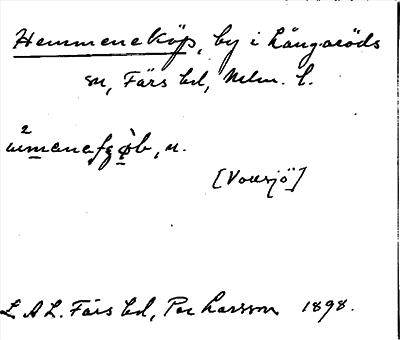 Hemmeneköp, by i Långaröds
sn, Färs hd, Mlm. l.
n.
[Vollsjö]
L A L. Färs hd, Per Larsson 1898.